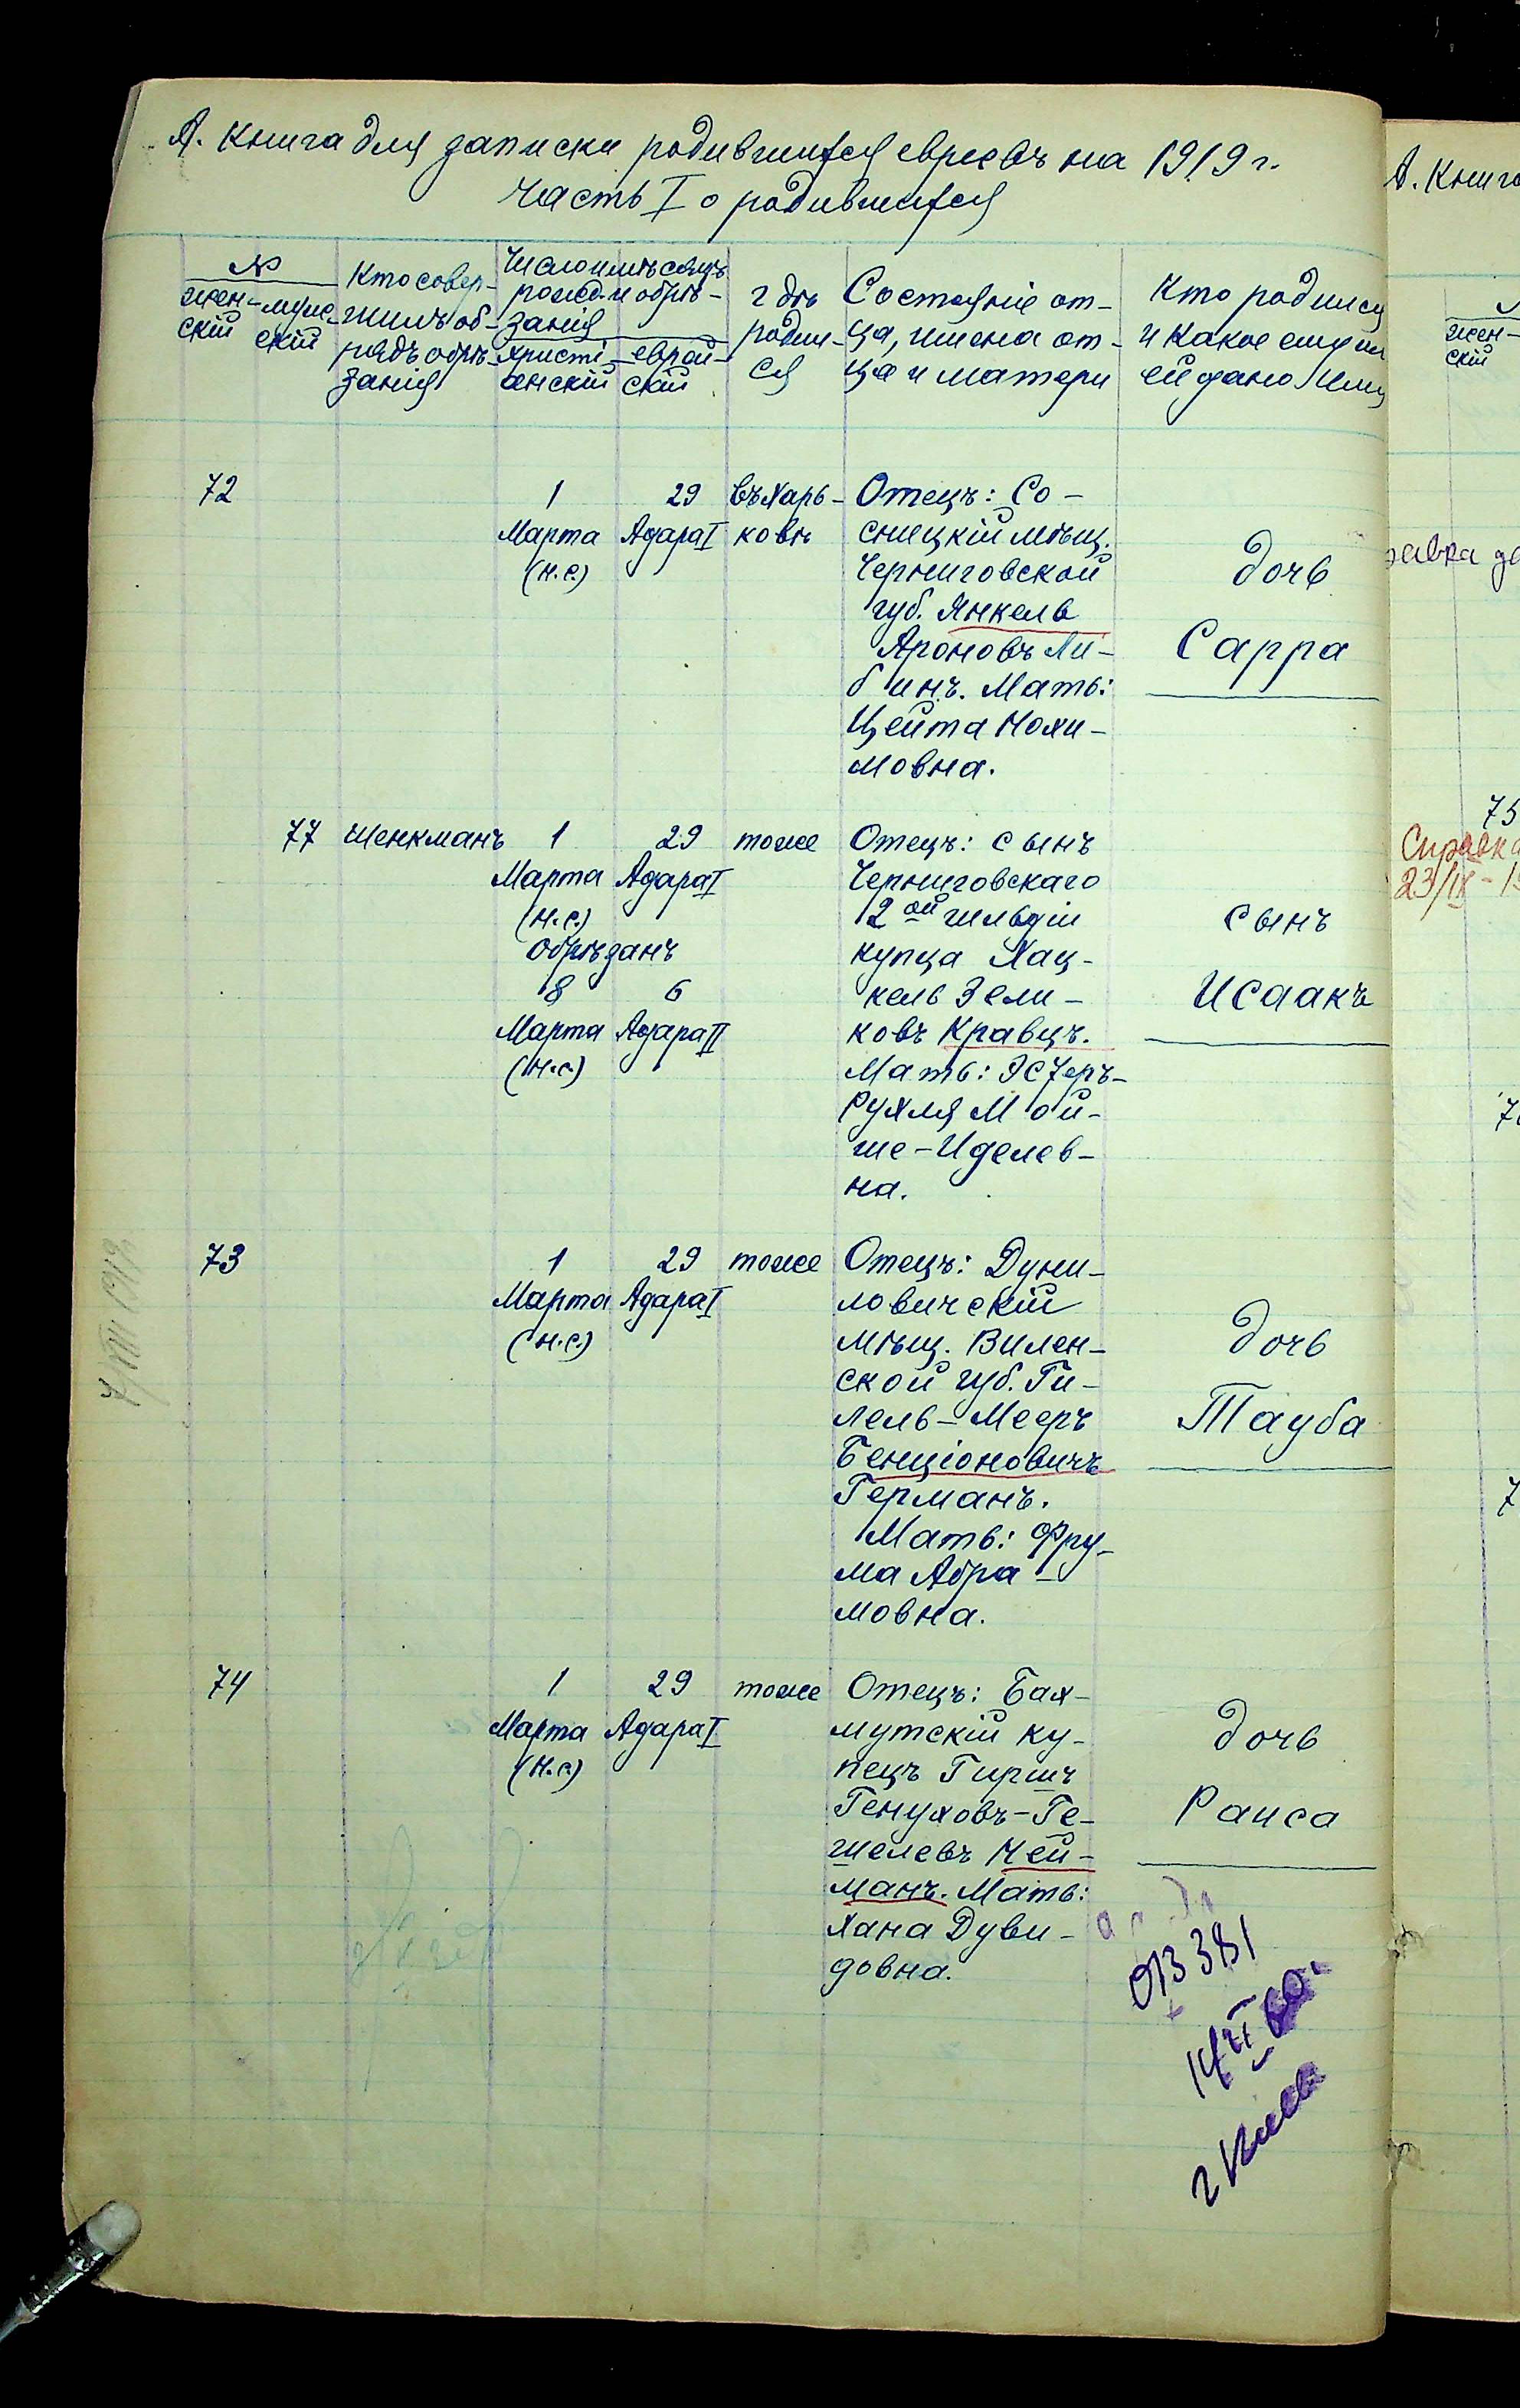 А. Книга для записки родившихся евреевъ на 1919 г.
Часть I о родившихся
№
жен-
скій
муже-
скій
Кто совер-
шилъ об-
рядъ обрѣ-
занія
Число и мѣсяцъ
рожд. и обрѣ-
занія
христі-
анскій
еврей-
скій
гдѣ
родил-
ся
Состояніе от-
ца, имена от-
ца и матери
Кто родился
и какое ему или
ей дано имя
72
1
Марта
(н.с.)
29
Адара I
въ Харь-
ковѣ
Отецъ: Со-
сницкій мѣщ.
Черниговской
губ. Янкель
Ароновъ Ли-
бинъ. Мать:
Цейта Нохи-
мовна.
дочь
Сарра
77
Шенкманъ
1
Марта
(н.с.)
29
Адара I
Обрѣзанъ
8
Марта
(н.с.)
6
Адара II
тоже
Отецъ: сынъ
Черниговскаго
2ой гильдіи
купца Хац-
кель Зели-
ковъ Кравцъ.
Мать: Эстеръ-
Рухля Мой-
ше-Иделев-
на.
сынъ
Исаакъ
73
1
Марта
(н.с.)
29
Адара I
тоже
Отецъ: Дуни-
ловичскій
мѣщ. Вилен-
ской губ. Ги-
лель-Мееръ
Бенціоновичъ
Германъ.
Мать: Фру-
ма Абра-
мовна.
дочь
Тауба
74
1
Марта
(н.с.)
29
Адара I
тоже
Отецъ: Бах-
мутскій ку-
пецъ Гиршъ
Генуховъ-Ге-
шелевъ Ней-
манъ. Мать:
Хана Дуви-
довна.
дочь
Раиса
013381
г Киев
А. Книга
жен-
скій
75
Справка
23/IX - 1